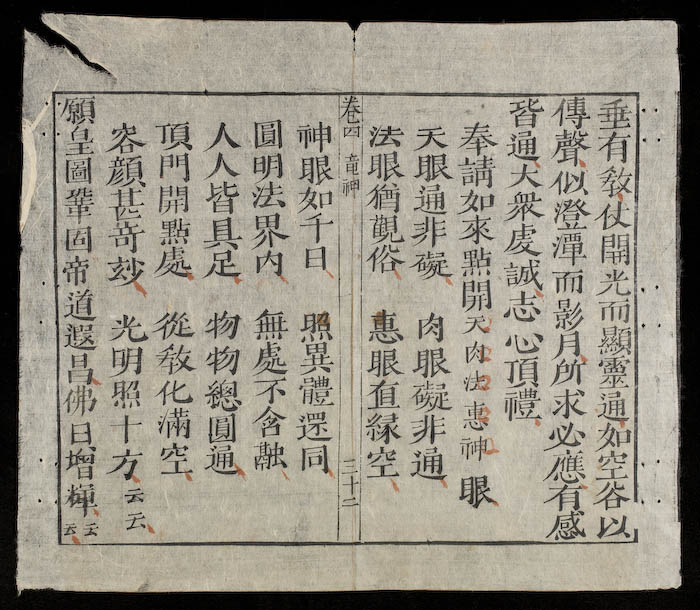 垂有敎仗開光而顯靈通如空谷以
傳聲似澄潭而影月所求必應有感
皆通大衆虔誠志心頂禮
奉請如來點開天肉法惠神眼
天眼通非礙　肉眼礙非通
法眼猶觀俗　惠眼直緣空
卷四　竜神　三十二
神眼如千日　照異體還同
圓明法界內　無處不含融
人人皆具足　物物總圓通
頂門開點處　從敎化滿空
容顏甚竒玅　光明照十方云云
願皇圖鞏固帝道遐昌佛日增輝云云